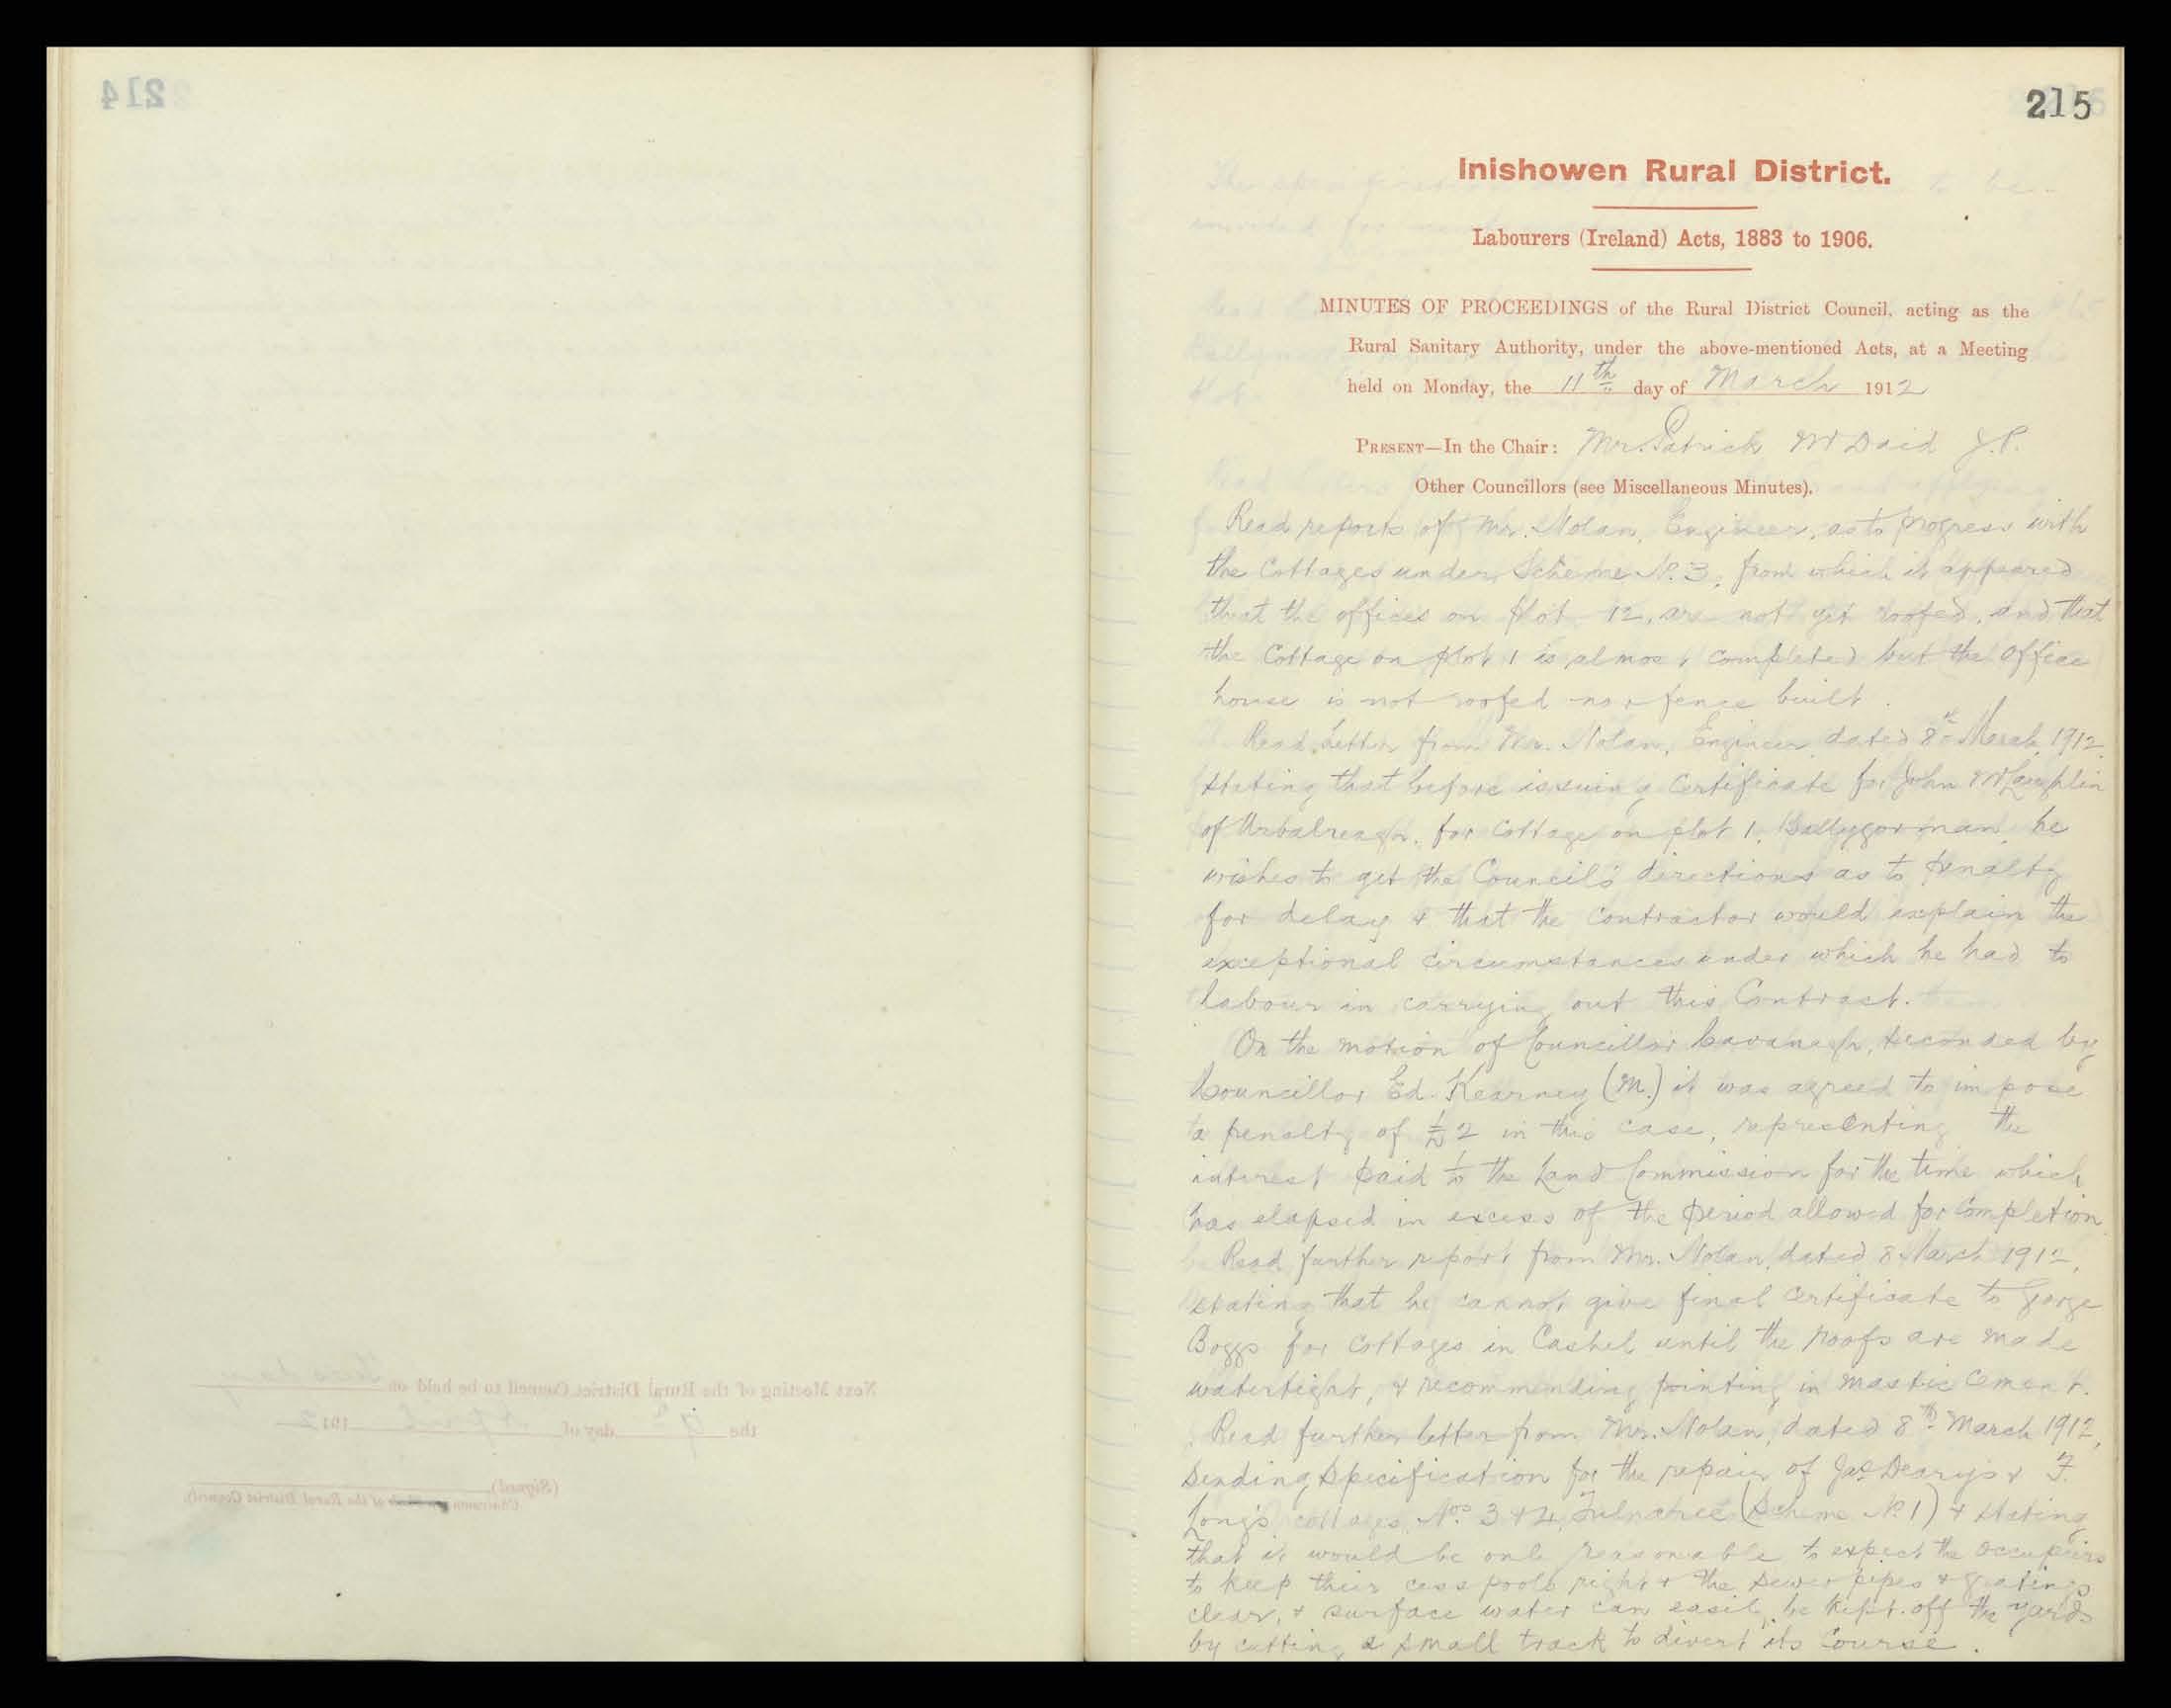 215
Inishowen Rural District.
Labourers (Ireland) Acts, 1883 to 1906.
MINUTES OF PROCEEDINGS of the Rural District Council, acting as the
Rural Sanitary Authority, under the above-mentioned Acts, at a Meeting
held on Monday, the 11th day of March 1912
PRESENT—In the Chair: Mr. Patrick McDaid J.P.
Other Councillors (see Miscellaneous Minutes).
Read reports of Mr. Nolan, Engineer, as to progress with
the Cottages under Scheme No. 3, from which it appeared
that the offices on plot 12, are not yet roofed, and that
the Cottage on plot 1 is almost completed but the office
house is not roofed nor fence built.
Read letter from Mr. Nolan, Engineer dated 8th March 1912,
stating that before issuing Certificate for John McLaughlin
of Urbalreagh, for Cottage on plot 1, Ballygorman, he
wishes to get the Council's directions as to penalty
for delay & that the contractor would explain the
exceptional circumstances under which he had to
labour in carrying out this Contract.
On the motion of Councillor Cavanagh, seconded by
Councillor Ed. Kearney (M.) it was agreed to impose
a penalty of £2 in this case, representing the
interest paid to the Land Commission for the time which
has elapsed in excess of the period allowed for Completion
Read further report from Mr. Nolan, dated 8 March 1912,
stating that he cannot give final certificate to George
Boggs for cottages in Cashel until the roofs are made
watertight, & recommending pointing in mastic cement.
Read further letter from Mr. Nolan, dated 8th March 1912,
sending specification for the repair of Jas. Deary's & F.
Long's cottages, Nos. 3 & 4, (Scheme No. 1) & stating
that it would be only reasonable to expect the occupiers
to keep their cesspools right & the sewer pipes & gratings
clear, & surface water can easily be kept off the yards
by cutting a small track to divert its course.
214
Next Meeting of the Rural District Council to be held on Tuesday
the 9th day of April 1912
(Signed)
Chairman of the Rural District Council.